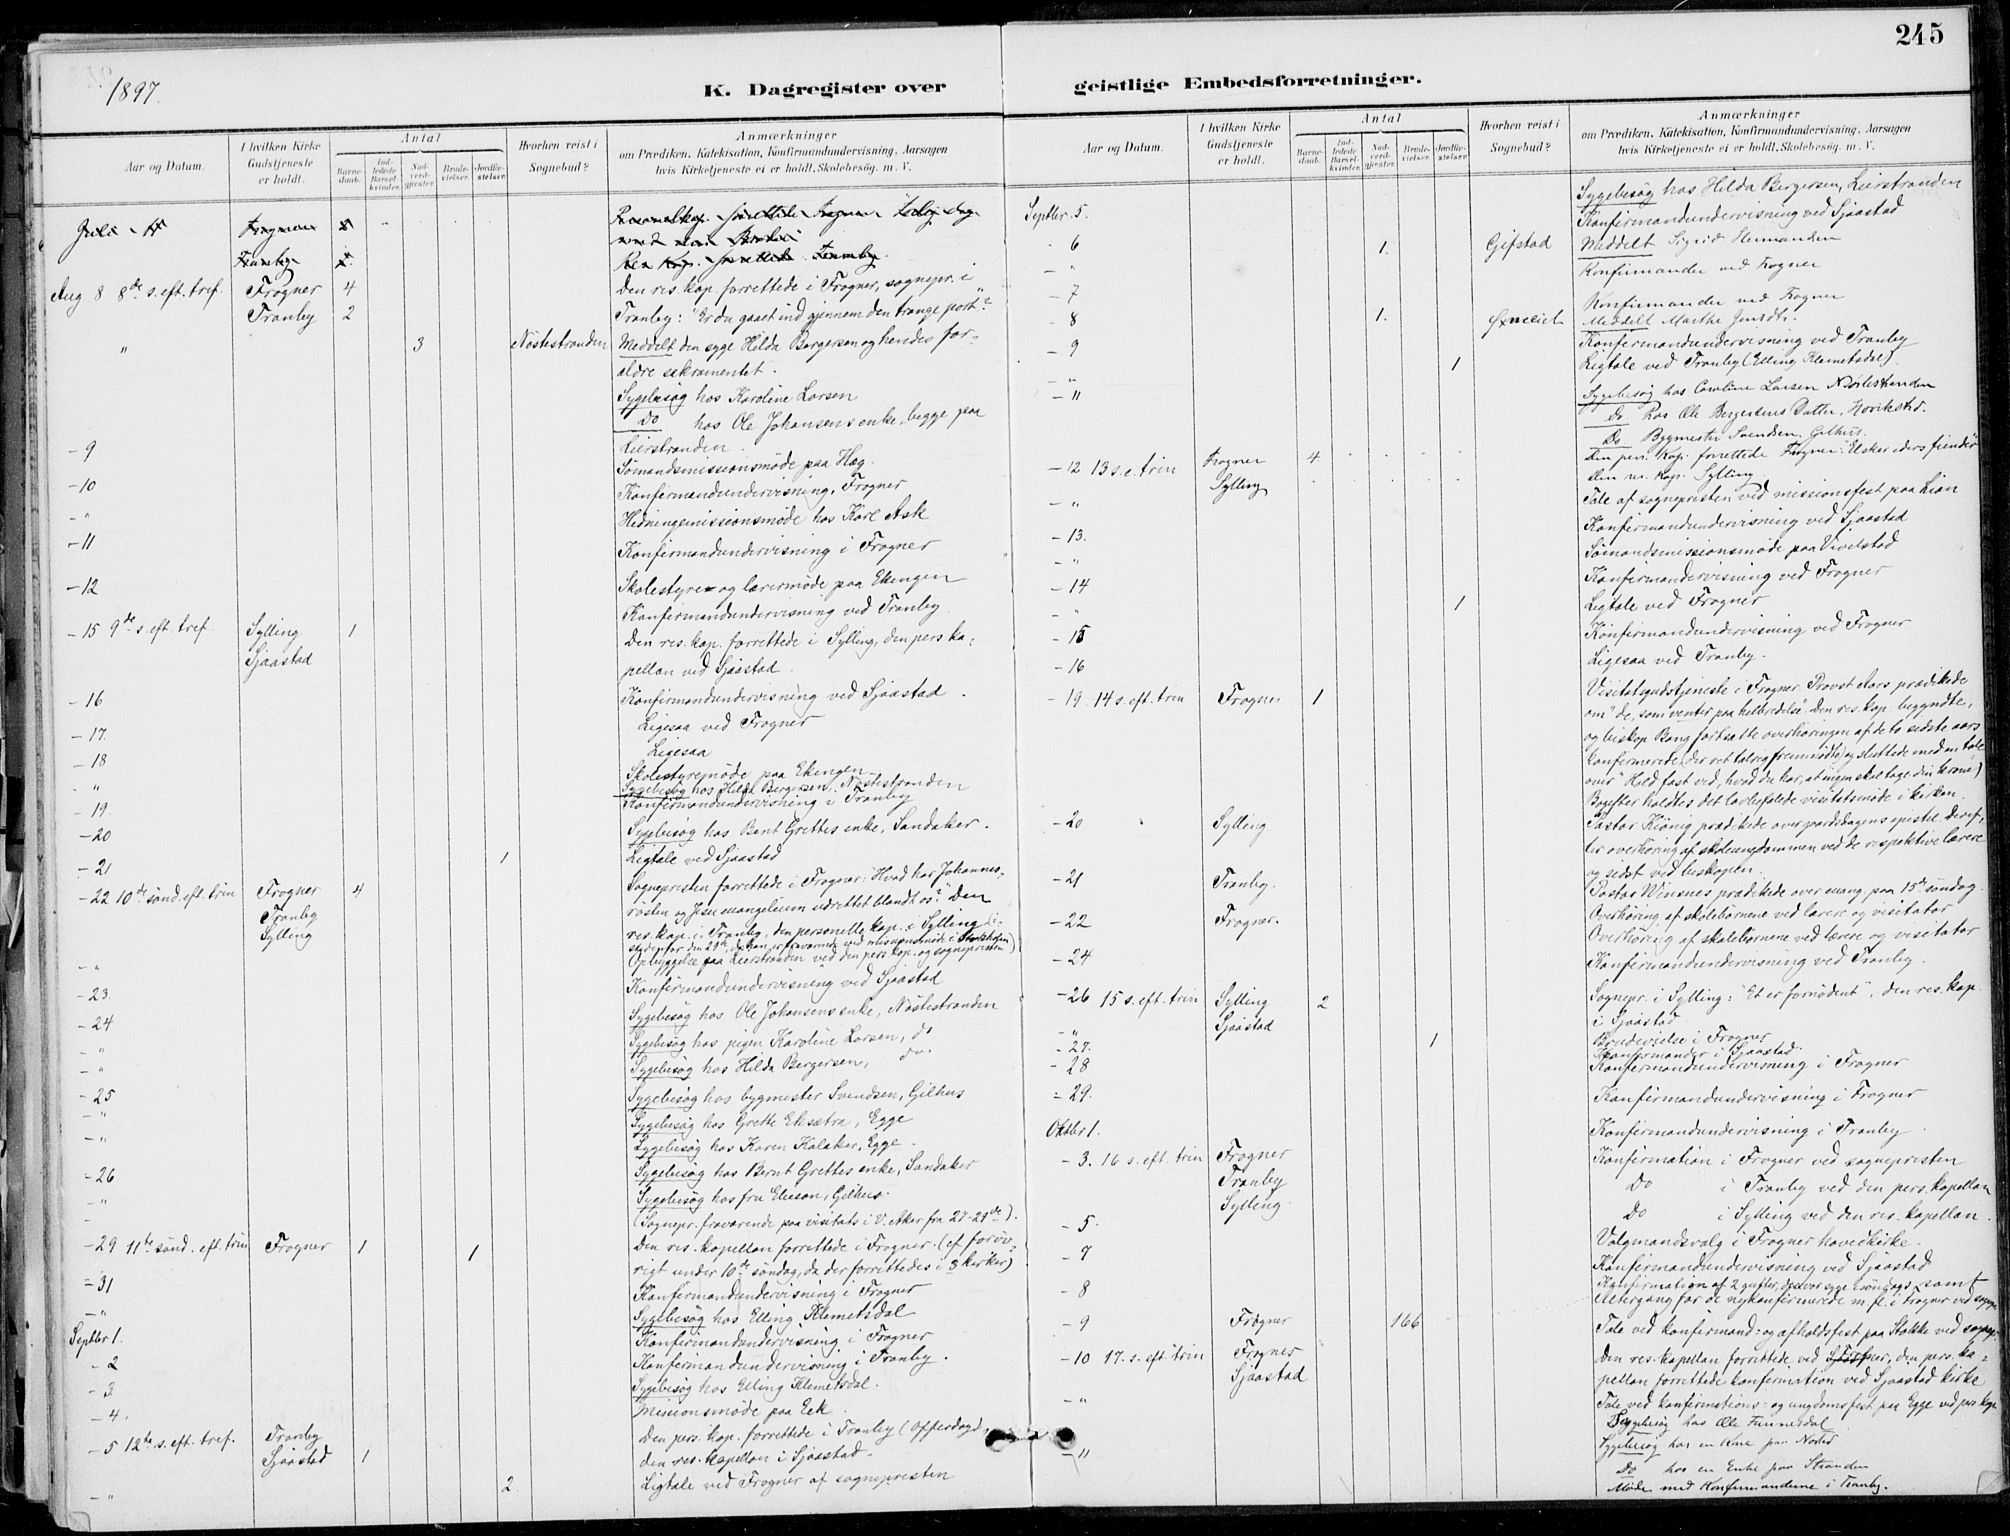 245
1897.
K. Dagregister over geistlige Embedsforretninger.
Aar og Datum.
I hvilken Kirke Gudstjeneste er holdt.
Antal
Barnedaab.
Indledede Barselkvinder.
Nadverdgjester.
Brudevielser.
Jordfæstelser.
Hvorhen reist i Sognebud?
Anmærkninger
om Prædiken, Katekisation, Konfirmandundervisning, Aarsagen
hvis Kirketjeneste ei er holdt, Skolebesøg. m. V.
Aug 8 8de s. eft. tref. Frogner 4 Den res. kap. forrettede i Frogner, sognepr. i
Tranby 2 Tranby: "Er du gaaet ind gjennem den trange port?"
" 3 Nøstestranden Meddelt den syge Hilda Bergersen og hendes for-
ældre sakramentet.
Sygebesøg hos Karoline Larsen
Do hos Ole Johansens enke, begge paa
Lierstranden.
- 9 Sømandsmissionsmøde paa Hæg.
- 10 Konfirmandundervisning, Frogner
- " Hedningemissionsmøde hos Karl Ask
- 11 Konfirmandundervisning i Frogner
- 12 Skolestyre- og lærermøde paa Ekengen
Konfirmandundervisning ved Tranby
- 15 9de s. eft. tref. Sylling 1 Den res. kap. forrettede i Sylling, den pers. ka-
Sjaastad pellan ved Sjaastad.
- 16 Konfirmandundervisning ved Sjaastad.
- 17. Ligesaa ved Frogner
- 18 Ligesaa
" Skolestyremøde paa Ekengen
Sygebesøg hos Hilda Bergersen, Nøstestranden
- 19. Konfirmandundervisning i Tranby
- 20 Sygebesøg hos Bent Grettes enke, Sandaker.
- 21 1 Ligtale ved Sjaastad
- 22 10de sønd. eft. trin Frogner 4 Sognepresten forrettede i Frogner: "Hvad har Johannes-
Tranby røsten og Jesu evangelium udrettet blandt os?" Den
Sylling res. kap. i Tranby, den personelle kap. i Sylling (i-
stedenfor den 29de, da han er fraværende ved missionsmøde i Stokholm)
- " Opbyggelse paa Lierstranden ved den pers. kap. og sognepresten
- 23 Konfirmandundervisning ved Sjaastad
- 24 Sygebesøg hos Ole Johansens enke, Nøstestranden
- " Sygebesøg hos pigen Karoline Larsen, do
- " Sygebesøg hos Hilda Bergersen, do.
- 25 Sygebesøg hos bygmester Svendsen, Gilhus
- " Sygebesøg hos Grethe Eksætra, Egge
- " Sygebesøg hos Karen Kalaker, Egge.
- 26 Sygebesøg hos Bernt Grettes enke, Sandaker
- " Sygebesøg hos fru Elieson, Gilhus.
(Sognepr. fraværende paa visitats i V. Aker fra 27-29de).
- 29 11te sønd. eft. trin Frogner 1 1 Den res. kapellan forrettede i Frogner. (cf forøv-
rigt under 10de søndag, da der forrettedes i 3 kirker)
- 31 Konfirmandundervisning i Frogner
- " Sygebesøg hos Elling Klemetsdal
Septbr 1. Konfirmandundervisning i Frogner
- 2 Konfirmandundervisning i Tranby.
- 3 Sygebesøg hos Elling Klemetsdal.
- 4. Missionsmøde paa Eek.
- 5 12te s. eft. tref. Tranby Den pers. kap. forrettede i Tranby (Offerdag)
Sjaastad 1 den res. kapellan i Sjaastad.
- " 2. Ligtale ved Frogner af sognepresten
Aar og Datum.
I hvilken Kirke Gudstjeneste er holdt.
Antal
Barnedaab.
Indledede Barselkvinder.
Nadverdgjester.
Brudevielser.
Jordfæstelser.
Hvorhen reist i Sognebud?
Anmærkninger
om Prædiken, Katekisation, Konfirmandundervisning, Aarsagen
hvis Kirketjeneste ei er holdt, Skolebesøg. m. V.
Septbr. 5. Sygebesøg hos Hilda Bergersen, Lierstranden
- 6 Konfirmandundervisning ved Sjaastad
- " 1. Gifstad Meddelt Sigrid
- 7 Konfirmander ved Frogner
- 8 Konfirmander ved Frogner
1. Meddelt Marthe
- 9 Konfirmandundervisning ved Tranby
- " 1 Ligtale ved Tranby (Elling Klemetsdal).
- 11 Sygebesøg hos Caroline Larsen Nøstestranden
Do hos Ole Bergersens Datter,
Do Bygmester Svendsen, Gilhus.
- 12 13 s. e. trin Frogner 4 Den pers. Kap. forrettede Frogner: "Elsker eders fiender"
Sylling Den res. Kap. Sylling
- " Tale af sognepresten ved missionsfest paa Lian
- 13. Konfirmandundervisning ved Sjaastad
- " Sømandsmissionsmøde paa Vivelstad
- 14 Konfirmandervisning ved Frogner
- " 1 Ligtale ved Frogner
- 15 Konfirmandundervisning ved Frogner
- 16 Ligesaa ved Tranby.
- 19 14 s. eft. trin Frogner 1 Visitatsgudstjeneste i Frogner. Provst Aars prædikede
om "de, som venter paa helbredelse". Den res. kap. begyndte,
og biskop Bang fortsatte overhøringen af de to sidste aars
konfirmerede (der ret talrig fremmødte) og sluttede med en tale
over "Hold fast ved, hvad du har, at ingen skal tage din krone")
Bagefter holdtes det lovbefalede visitatsmøde i kirken.
- 20 Sylling Pastor Kiønig prædikede over gaardsdagens epistel, deref-
ter overhøring af skoleungdommen ved de respektive lærere
og sidst ved biskopen.
- 21 Tranby. Pastor Winsnes prædikede over evang. paa 15de søndag.
Overhøring af skolebørnene ved lærere og visitator
- 22 Frogner. Overhøring af skolebørnene ved lærere og visitator
- 24 Konfirmandundervisning ved Tranby.
- 26 15 s. eft. trin Sylling 2 Sognepr. i Sylling: "Et er fornødent", den res. kap.
Sjaastad i Sjaastad
- " 1 Brudevielse i Frogner
- 27. Konfirmander i Sjaastad.
- 28 Konfirmandundervisning i Frogner
- 29. Konfirmandundervisning i Frogner
Oktbr 1. Konfirmandundervisning i Tranby.
- 3. 16 s. eft. trin Frogner Konfirmation i Frogner ved sognepresten
Tranby Do i Tranby ved den pers. kapellan
Sylling. Do i Sylling ved den res. kapellan.
- 5. Valgmandsvalg i Frogner hovedkirke.
- 7 Konfirmandundervisning ved Sjaastad
- 8 Konfirmation af 2 gutter, der var syge i søndags, samt
- 9 Frogner 166 Altergang for de nykonfirmerede m. fl. i Frogner ved sognepr.
Tale ved konfirmand- og afholdsfest paa Stokke ved sognepr.
- 10 17. s. eft. trin Frogner Den res. kapellan forrettede ved Frogner, den pers. ka-
Sjaastad pellan forrettede konfirmation ved Sjaastad kirke
- " Tale ved konfirmations- og ungdomsfest paa Egge ved pers. kap.
Sygebesøg hos Ole
- 11 Sygebesøg hos en Kone paa Nøsted
Do hos en Enke paa Stranden
Møde med Konfirmanderne i Tranby.